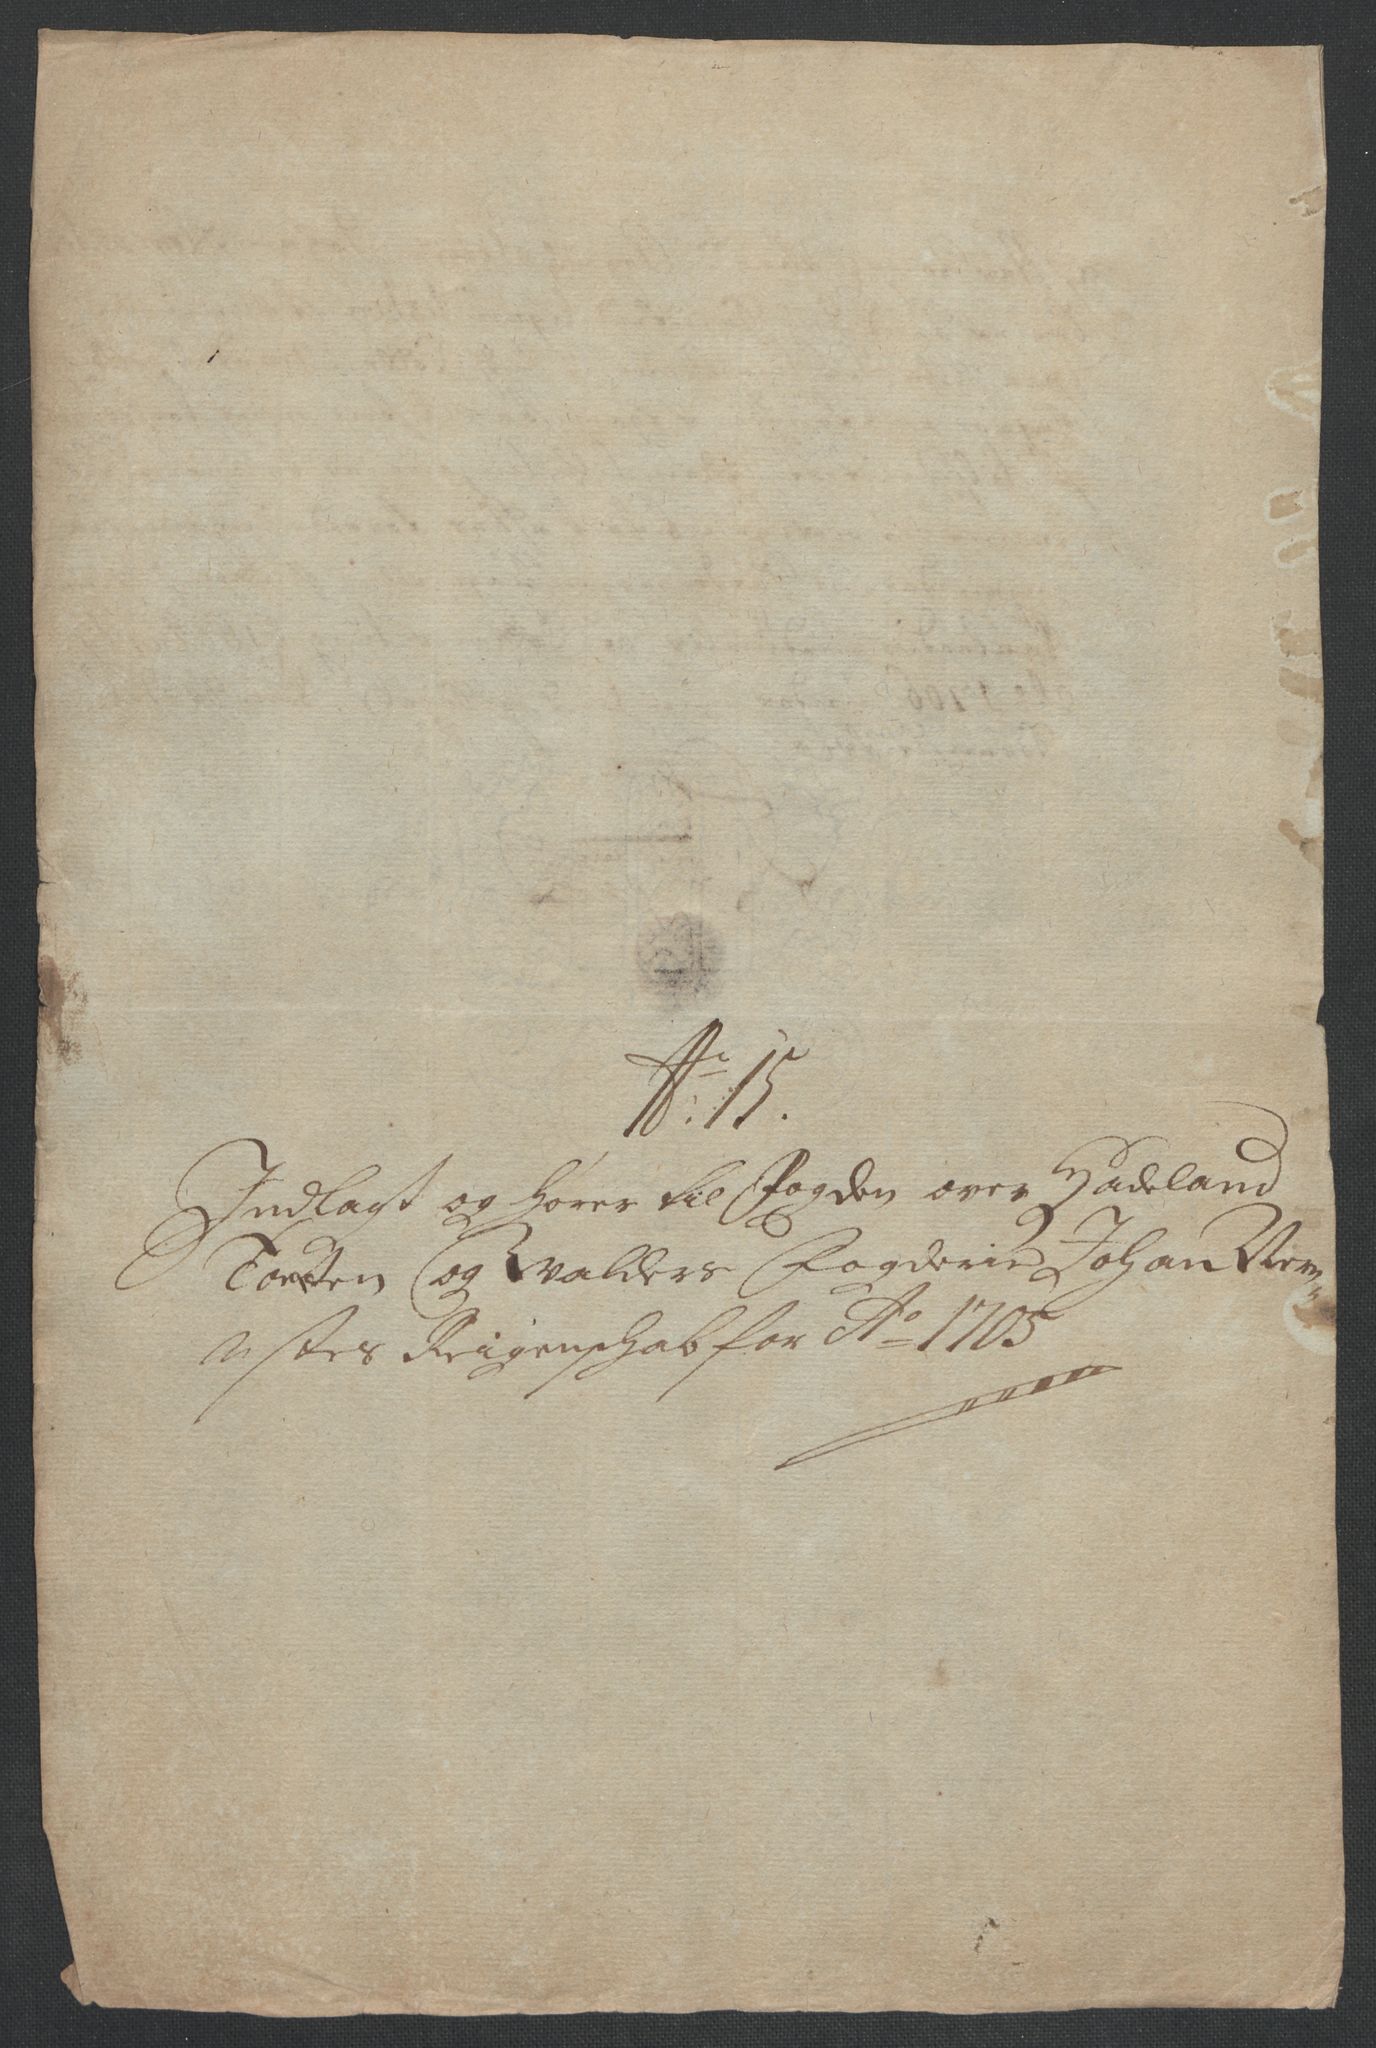 No: 15.
Indlagt og hører til Fogden over Hadeland
Toten og Walders Fogderie Johan Rem,,
nstes Reigenschab for Ao 1705